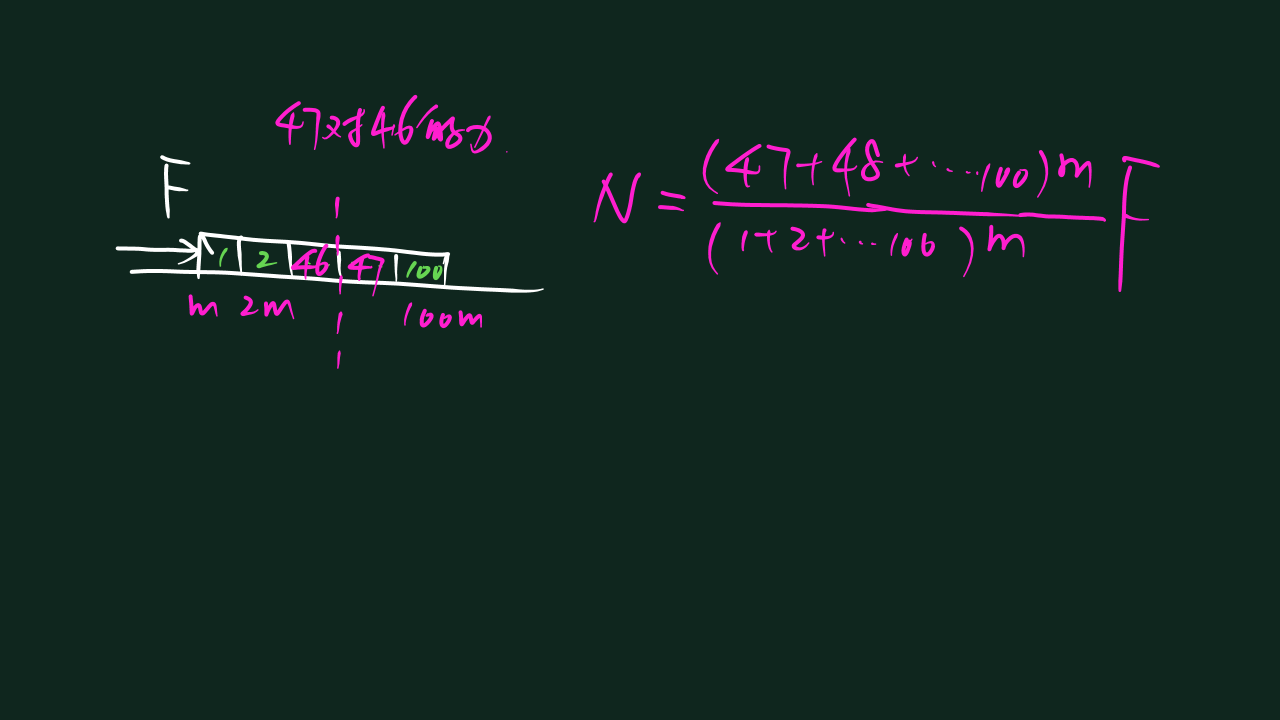 47对46
F
1 2 46 47 100
m 2m 100m
N = (47+48+……100)m / (1+2+…100)m F